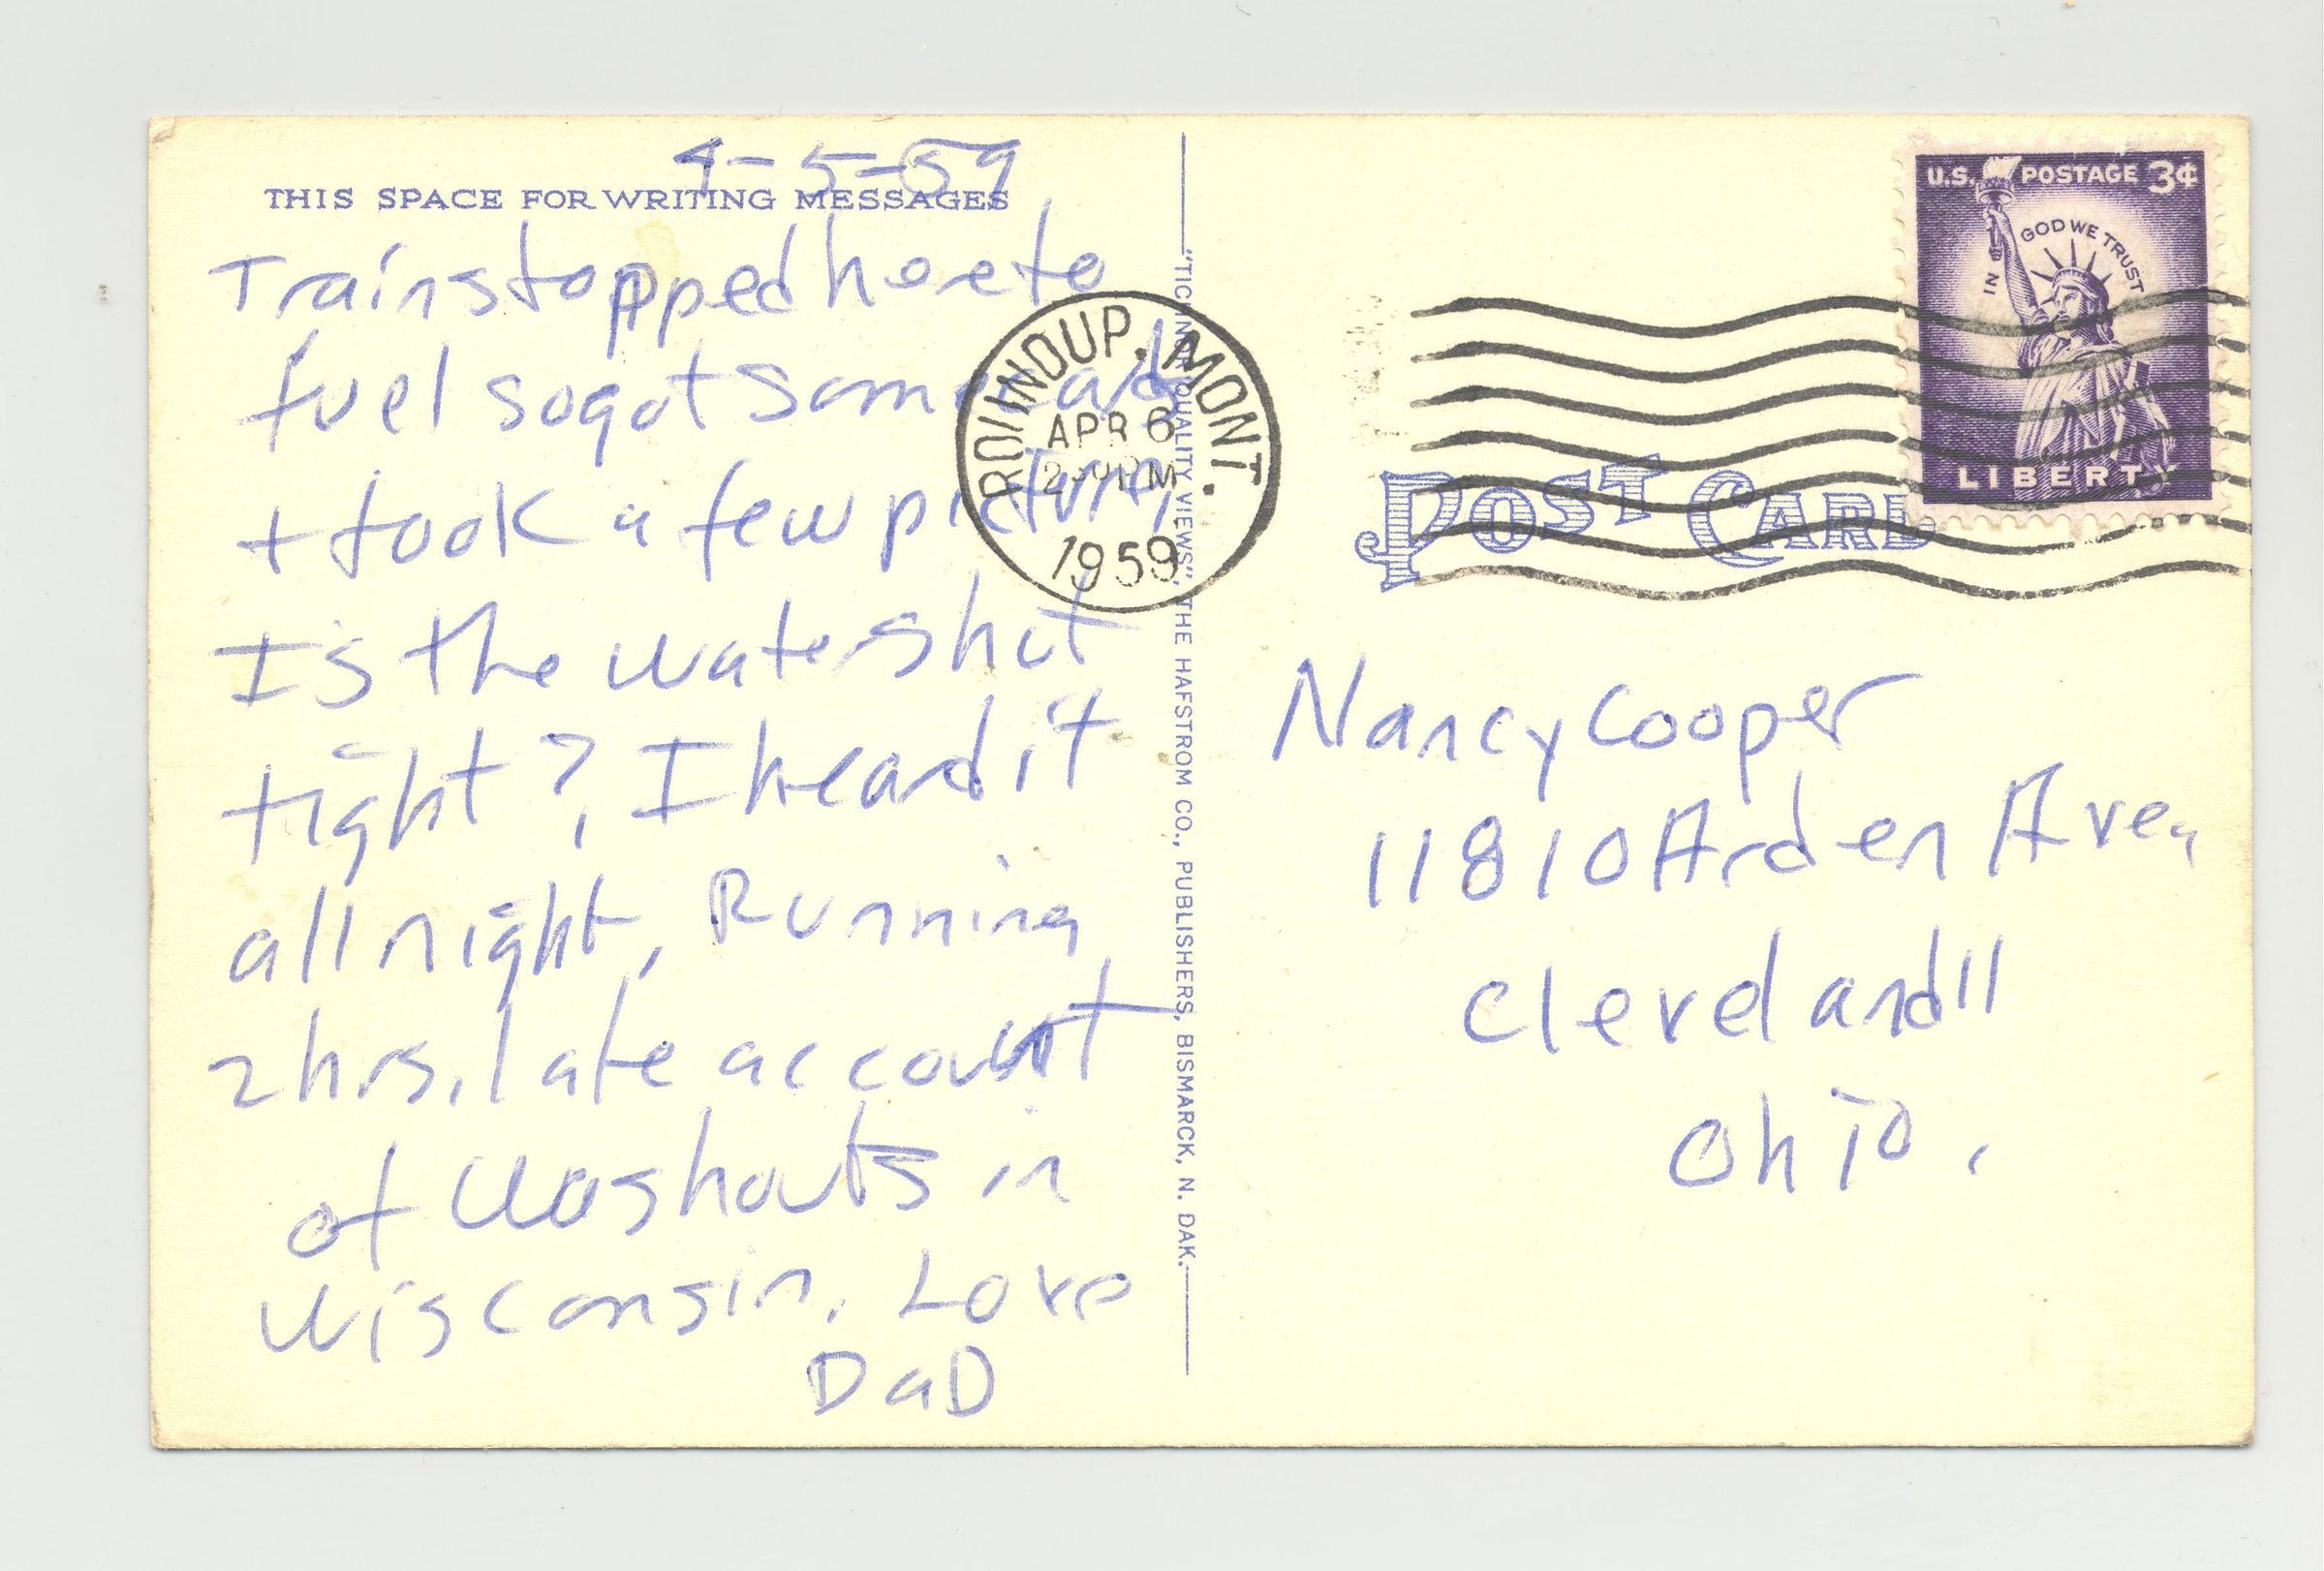 4-5-59
THIS SPACE FOR WRITING MESSAGES
Train stopped here to
fuel so got some cards
+ took a few pictures,
Is the water shut
tight?, I heard it
all night, Running
2 hrs. late account
of Washouts in
Wisconsin. Love
DaD
ROUNDUP, MONT.
APR 6
PM
1959
QUALITY VIEWS". THE HAFSTROM CO., PUBLISHERS, BISMARCK, N. DAK.
U.S. POSTAGE 3¢
IN GOD WE TRUST
LIBERTY
POST CARD
Nancy Cooper
11810 Arden Ave,
Cleveland 11
Ohio.